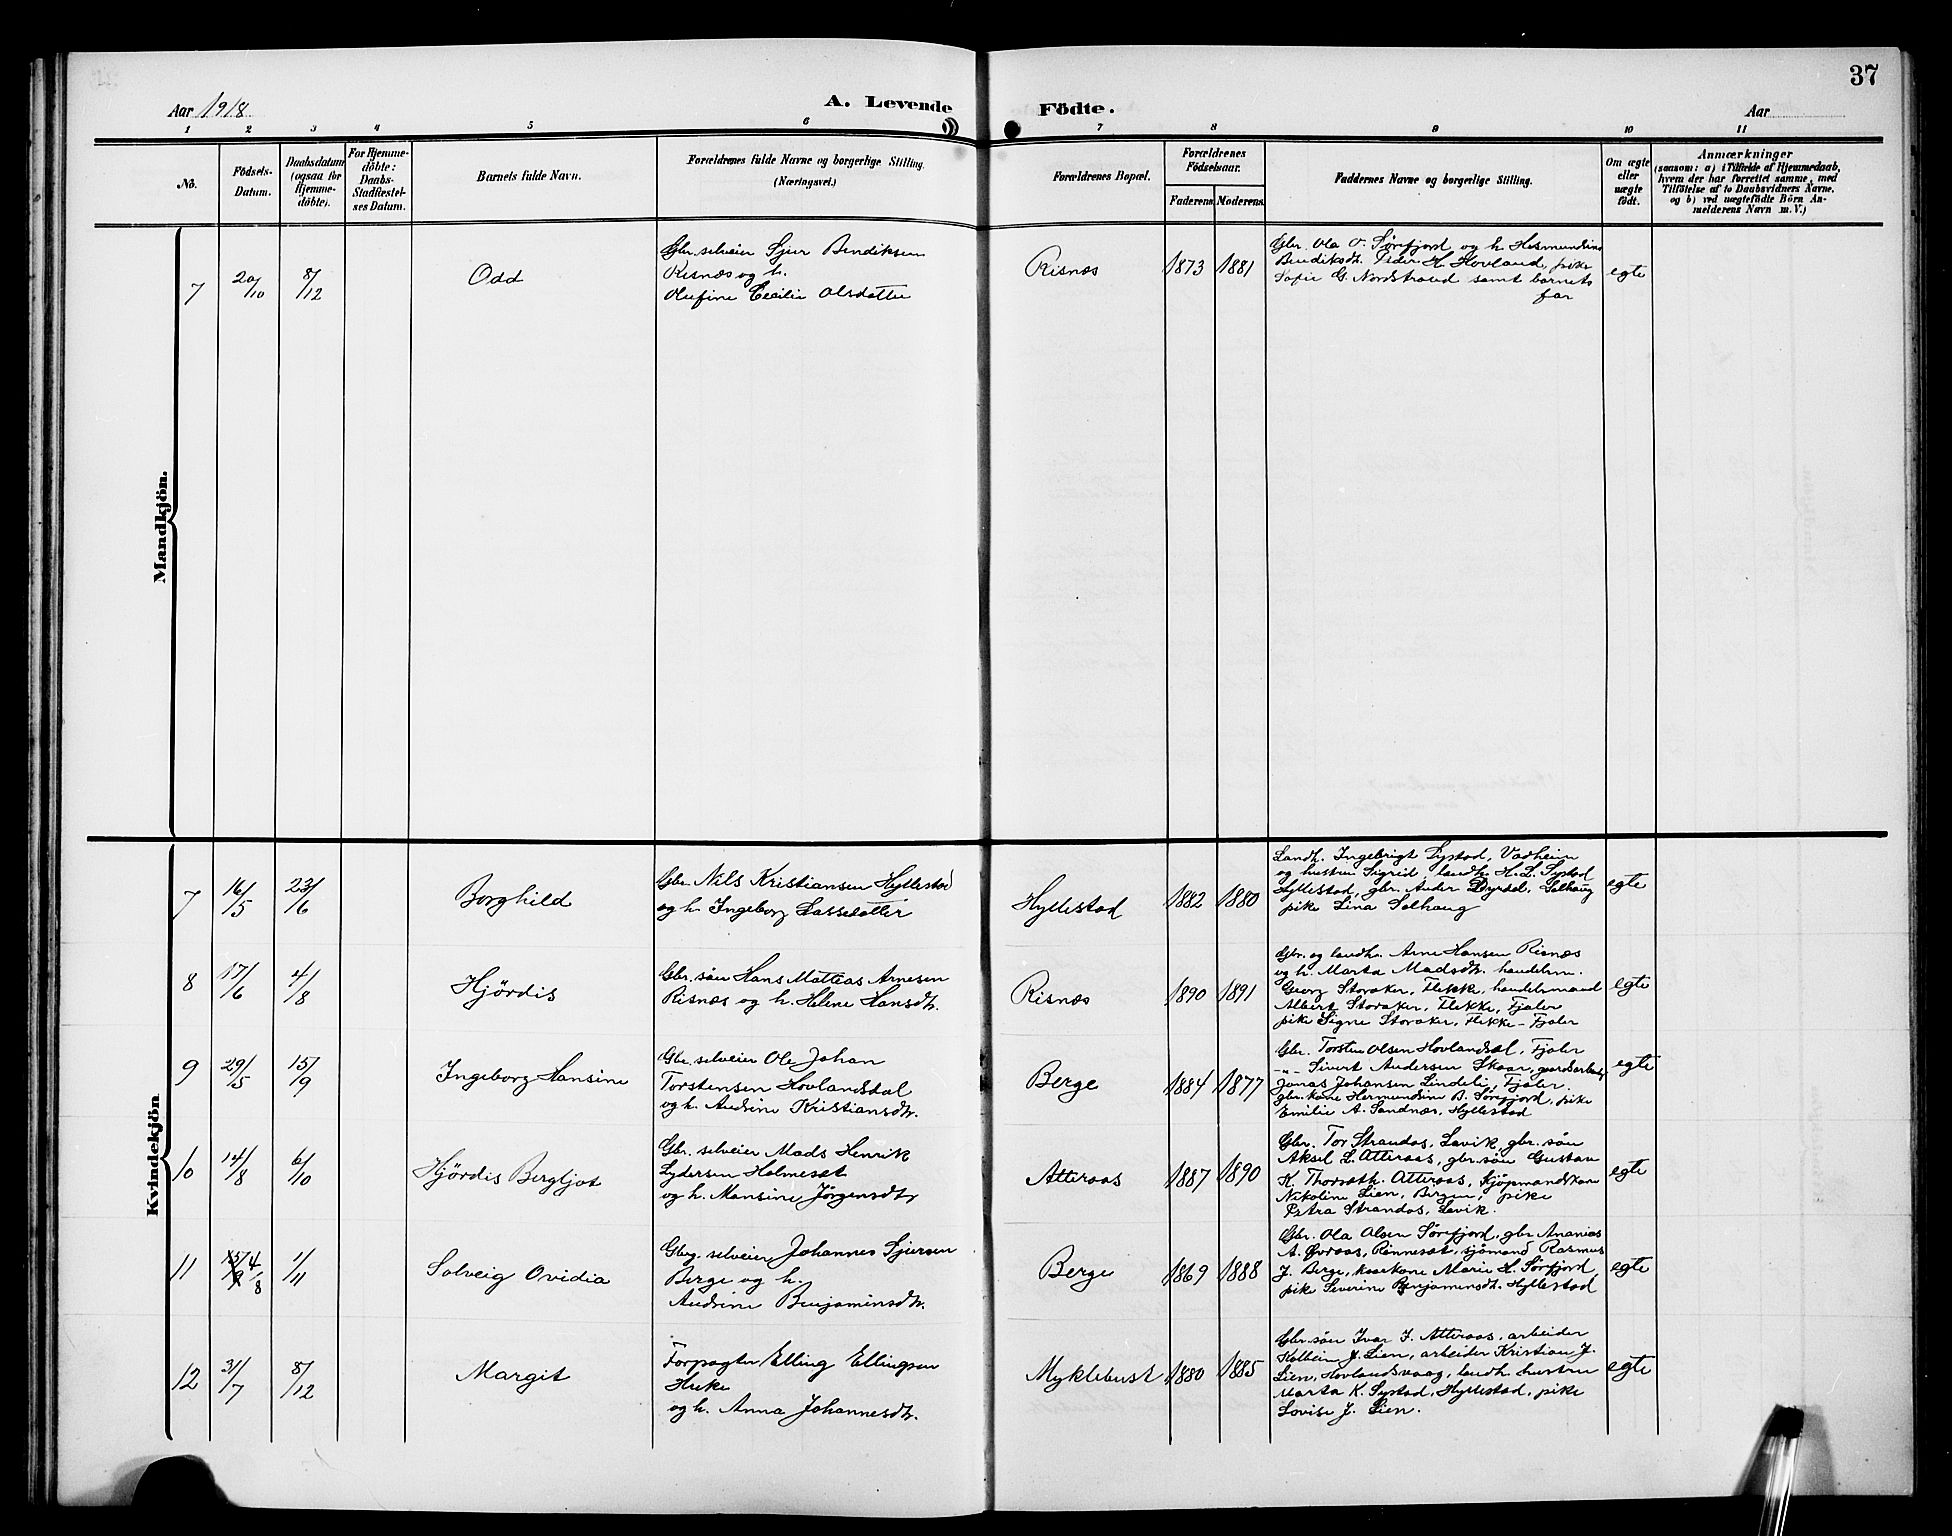 37
Aar 1918
A. Levende Födte.
Aar
1 2 3 4 5 6 7 8 9 10 11
No.
Födsels-Datum.
Daabsdatum (ogsaa for Hjemme-döbte).
For Hjemme-döbte: Daabs-Stadfestel-ses Datum.
Barnets fulde Navn.
Forældrenes fulde Navne og borgerlige Stilling. (Næringsvei.)
Forældrenes Bopæl.
Forældrenes Födselsaar.
Faderens Moderens
Faddernes Navne og borgerlige Stilling.
Om ægte eller uægte födt.
Anmærkninger
(saasom: a) i Tilfælde af Hjemmedaab, hvem der har forrettet samme, med Tilföielse af to Daabsvidners Navne, og b) ved uægtefödte Börn Anmelderens Navn m. V.)
Mandkjön.
7 20/10 8/12 Odd
Gbr. selveier Sjur Bendiksen
Risnæs og h.
Olufine Cecilie Olsdatter
Risnæs 1873 1881
Gbr. Ola O. Sørefjord og h. Hermundine
Bendiksdt. Peder H. Hovland, pike
Sofie G. Nordstrand samt barnets
far
egte
Kvindekjön
7 16/5 23/6 Borghild
Gbr. Nils Kristiansen Hyllestad
og h. Ingeborg Lassedatter
Hyllestad 1882 1880
Landh. Ingebrigt Systad, Vadheim
og hustru Sigrid, landh. H. L. Systad
Hyllestad, gbr. Anders Dyrdal, Solhaug
pike Lina Solhaug
egte
8 17/6 4/8 Hjördis
Gbr. søn Hans Mattias Arnesen
Risnæs og h. Helene Hansdt.
Risnæs 1890 1891
Gbr. og landh. Arne Hansen Risnæs
og h. Marta Madsdt. handelsm.
Georg Storaker, Flekke, handelsmand
Albert Storaker, Flekke, Fjaler
pike Signe Storaker, Flekke - Fjaler
egte
9 29/5 15/9 Ingeborg Hansine
Gbr. selveier Ole Johan
Torstensen Hovlandsdal
og h. Andrine Kristiansdt.
Berge 1884 1877
Gbr. Torsten Olsen Hovlandsdal, Fjaler
-"- Sivert Andersen Skaar, gaardsarbeid
Jonas Johansen Lindeli, Fjaler.
gbr. kone Hermundine B. Sørefjord, pike
Emilie A. Sandnæs, Hyllestad
egte
10 14/8 6/10 Hjördis Bergljot
Gbr. selveier Mads Henrik
Lydersen Holmeset
og h. Mansine Jørgensdtr
Atteraas 1887 1890
Gbr. Tor Strandos, Lavik, gbr. søn
Aksel L. Atteraas, gbr. søn Gustav
K. Atteraas, Kjøpmandskone
Nikoline Lien, Bergen, pike
Petra Strandos, Lavik.
egte
11 15/9 4/8 1/11 Solveig Ovidia
Gbr. selveier Johannes Sjursen
Berge og h.
Andrine Benjaminsdt.
Berge 1869 1888
Gbr. Ola Olsen Sørefjord, gbr Ananias
A. Øvraas, Rønneset, sjømand Rasmus
J. Berge, kaarkone Marie H. Sørfjord
pike Severine Benjaminsdt. Hyllestad
egte
12 31/7 8/12 Margit
Forpagter Elling Ellingsen
Huke
og h. Anna Johannesdt.
Myklebust 1880 1885
Gbr. søn Ivar J. Atteraas, arbeider
Kolbein J. Lien, arbeider Kristian J.
Lien, Hovlandsvaag, landh. hustru
Marta K. Systad, Hyllestad, pike
Lovise J. Lien.
egte